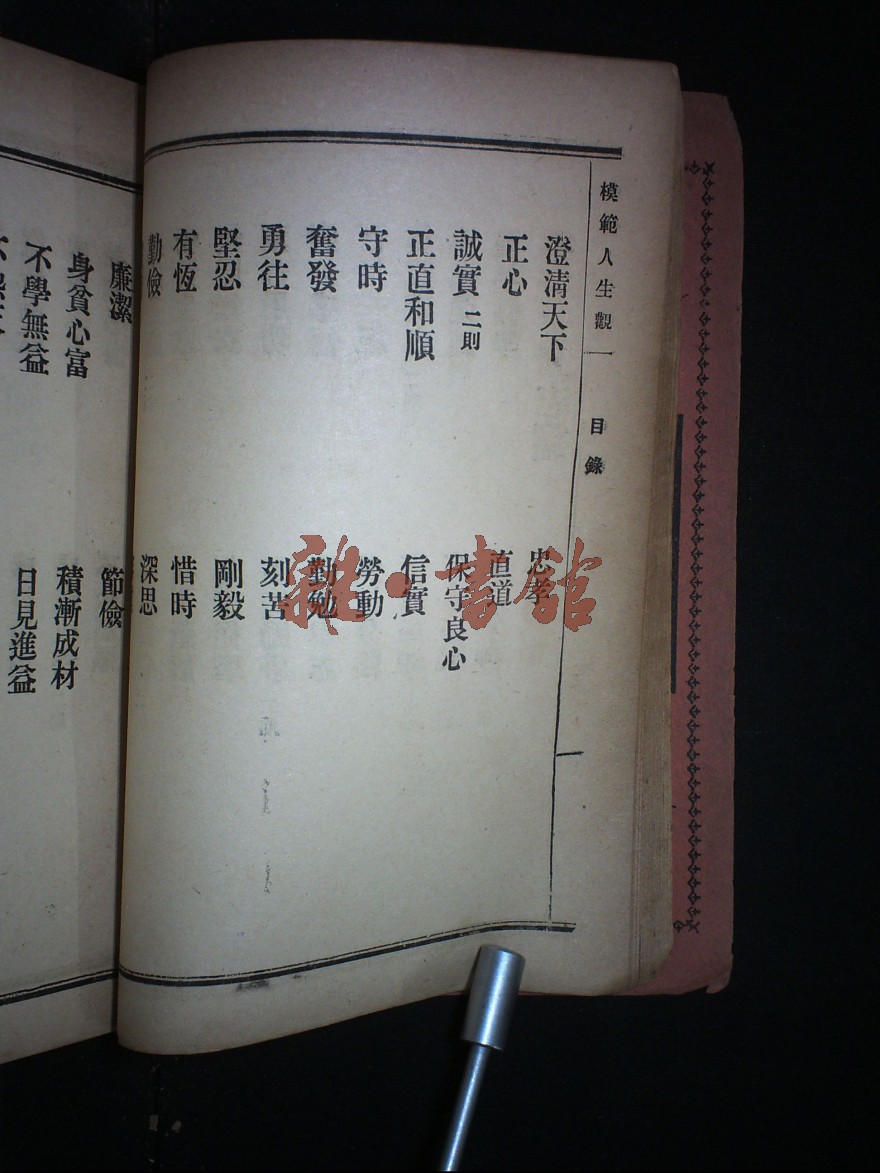 模範人生觀
一
目錄
一
澄清天下
忠孝
正心
直道
誠實 二則
保守良心
正直和順
信實
守時
勞動
奮發
勤勉
勇往
刻苦
堅忍
剛毅
有恆
惜時
勤儉
深思
廉潔
節儉
身貧心富
積漸成材
不學無益
日見進益
雜·書館